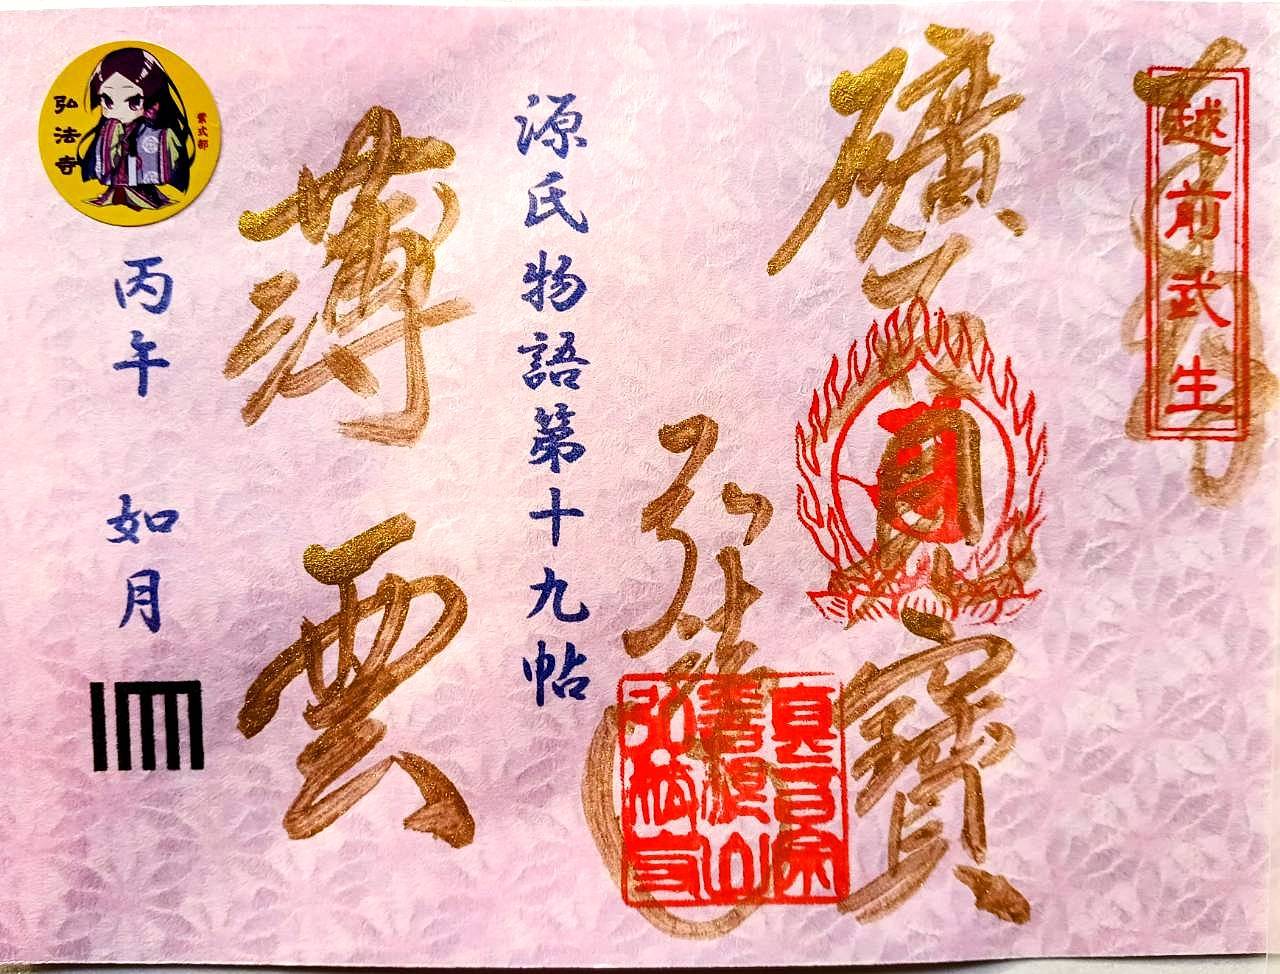 越前武生
寶
弘法寺
真言宗
弘法寺
源氏物語第十九帖
薄雲
紫式部
弘法寺
丙午 如月